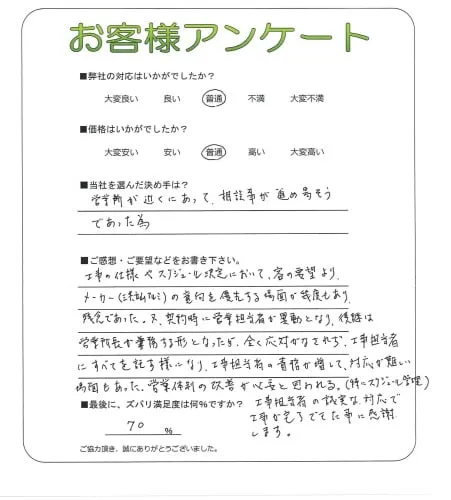 お客様アンケート
■弊社の対応はいかがでしたか？
大変良い 良い 普通 不満 大変不満
■価格はいかがでしたか？
大変安い 安い 普通 高い 大変高い
■当社を選んだ決め手は？
営業所が近くにあって、相談事が進め易そう
であった為
■ご感想・ご要望などをお書き下さい。
工事の仕様やスケジュール決定において、客の要望より、
メーカー(三協アルミ)の意向を優先する場面が幾度もあり、
残念であった。又、契約時に営業担当者が異動となり、後継は
営業所長が兼務する形となったが、全く応対がなされず、工事担当者
にすべてを託す様になり、工事担当者の負担が増して、対応が難しい
場面もあった。営業体制の改善が必要と思われる。(特にスケジュール管理)
■最後に、ズバリ満足度は何％ですか？
70 %
工事担当者の誠実な対応で
工事が完了できた事に感謝
します。
ご協力頂き、誠にありがとうございました。